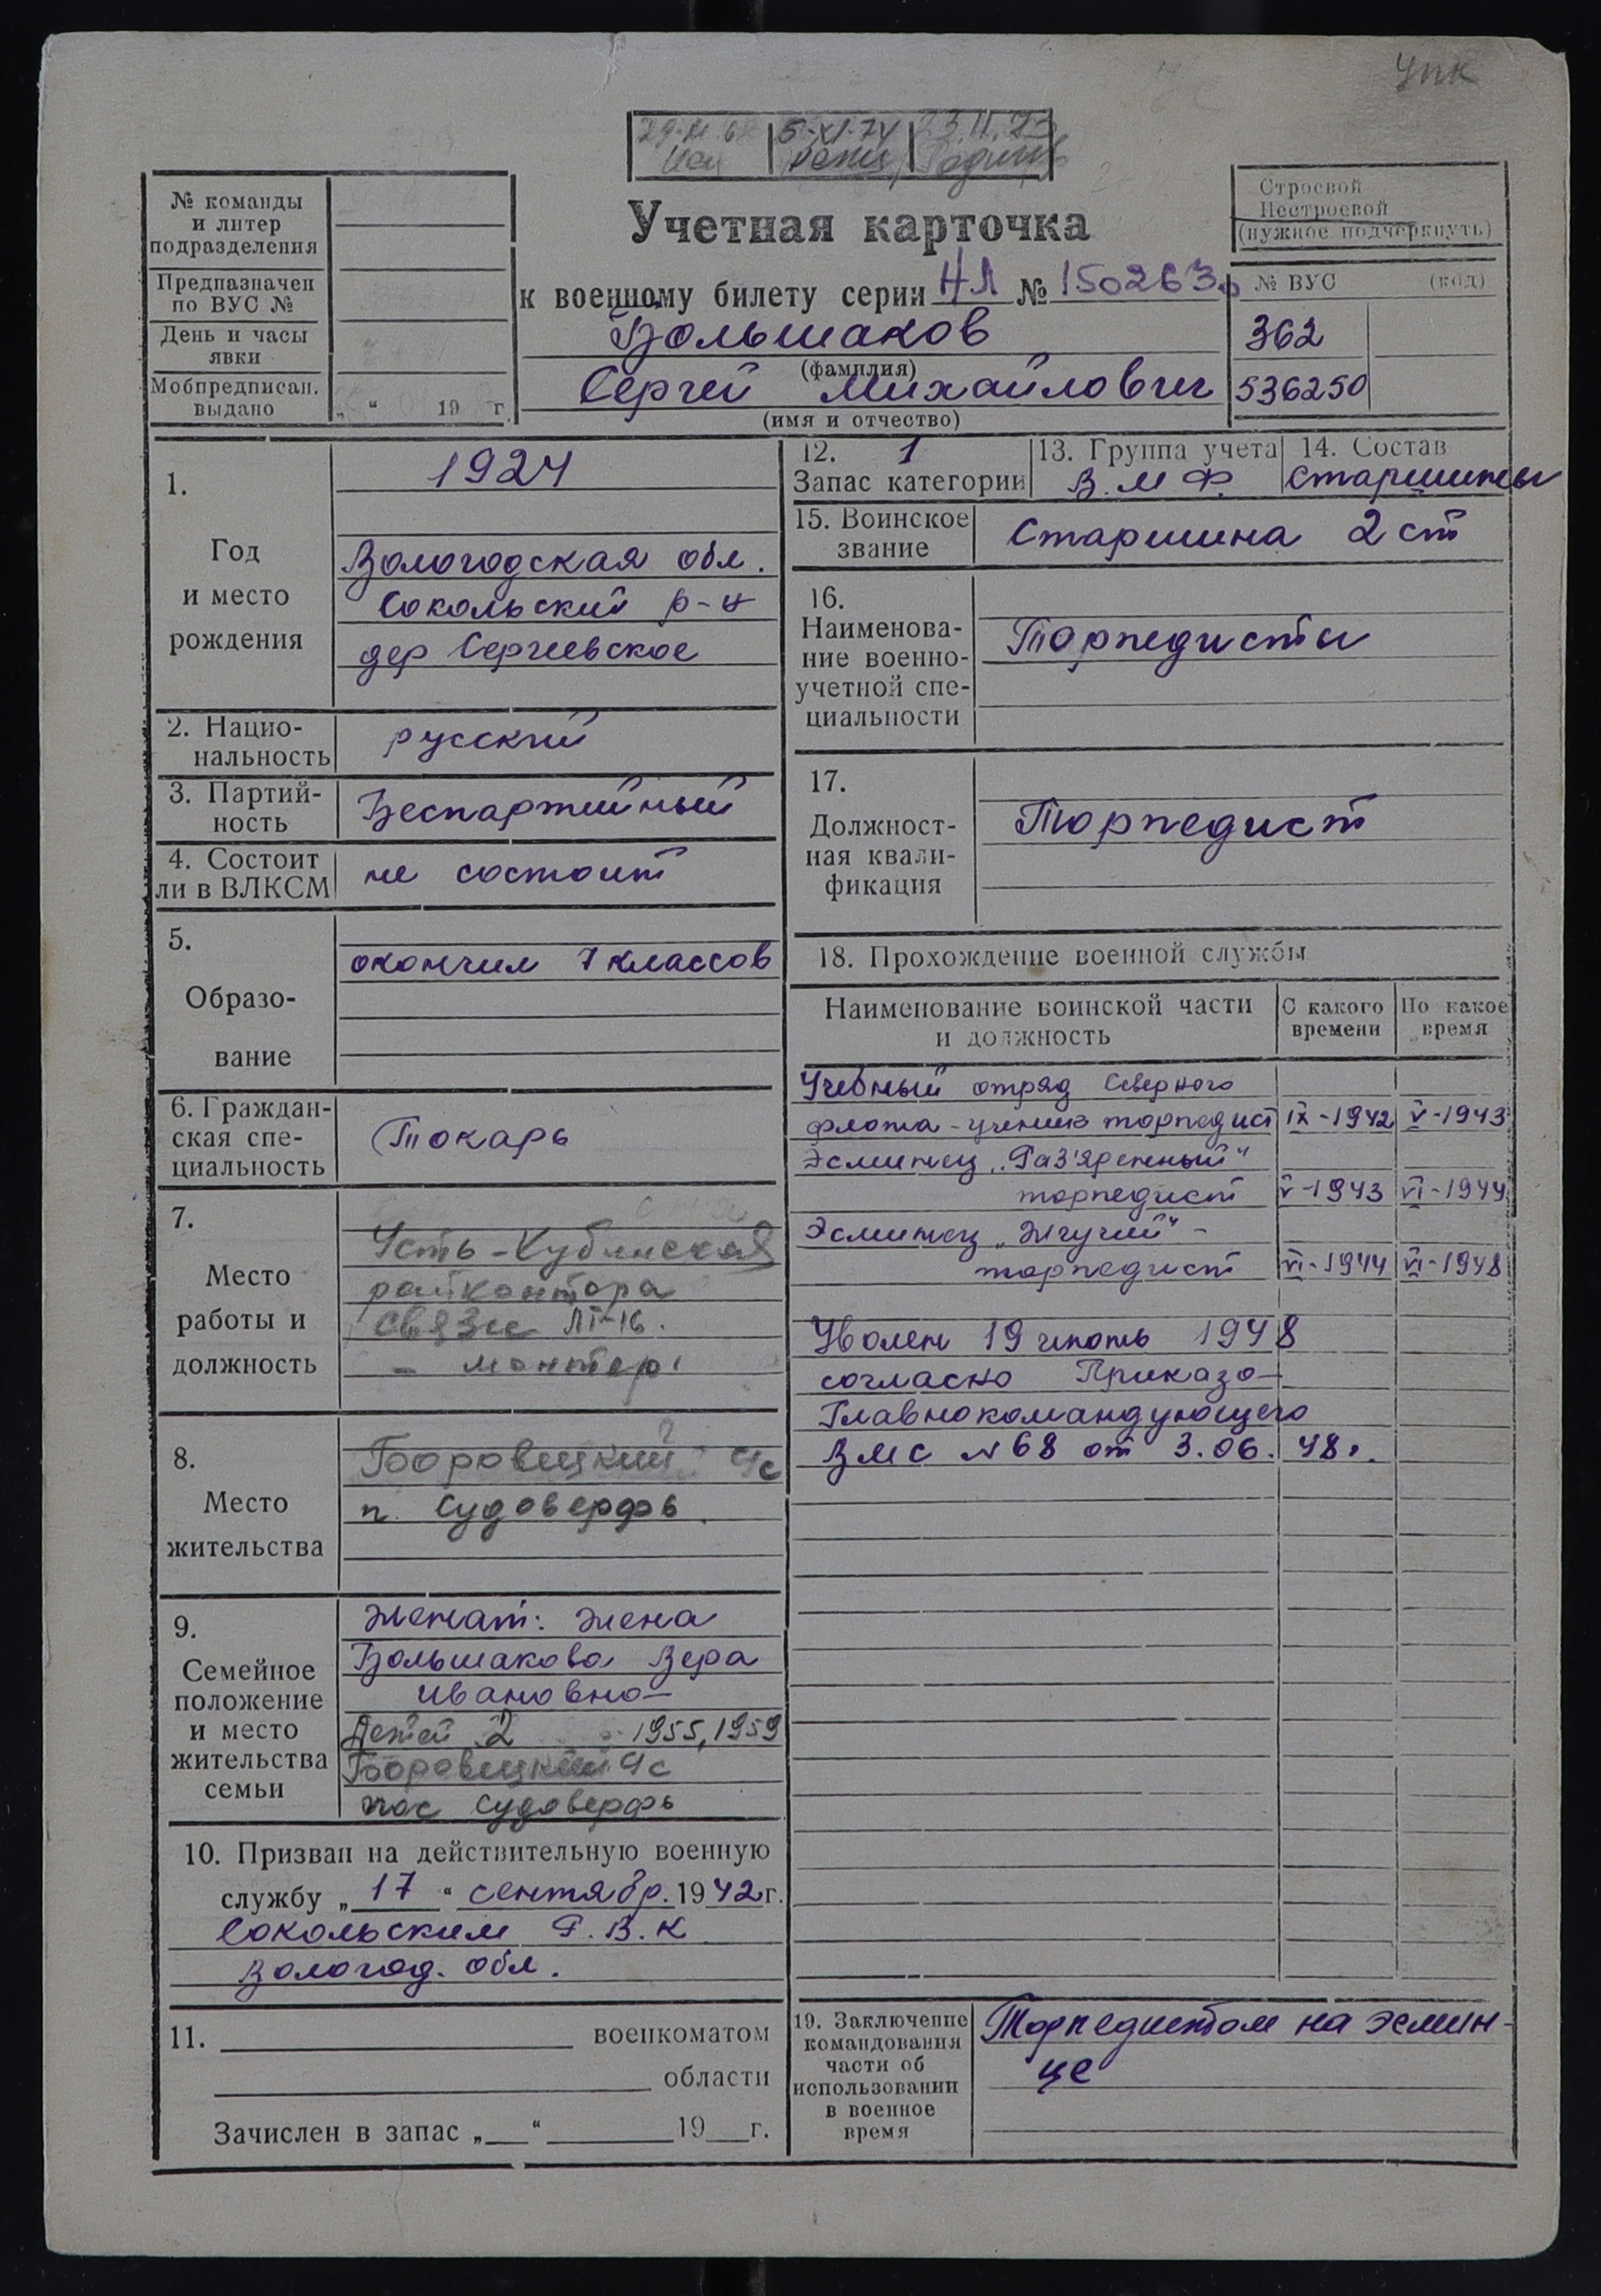 УПК
5-XI-74
№ команды
и литер
подразделения
Предназначен
по ВУС №
День и часы
явки
Мобпредписан.
выдано
„ “ 19 г.
Учетная карточка
к военному билету серии НЛ № 150263
Большаков
(фамилия)
Сергей Михайлович
(имя и отчество)
Строевой
Нестроевой
(нужное подчеркнуть)
№ ВУС (код)
362
536250
1.
Год
и место
рождения
1924
Вологодская обл.
Сокольский р-н
дер Сергеевское
2. Нацио-
нальность
русский
3. Партий-
ность
Беспартийный
4. Состоит
ли в ВЛКСМ
не состоит
5.
Образо-
вание
окончил 7 классов
6. Граждан-
ская спе-
циальность
Токарь
7.
Место
работы и
должность
Усть-Кубинская
райконтора
связи
- монтер
8.
Место
жительства
Боровецкий с/с
п. Судоверфь
9.
Семейное
положение
и место
жительства
семьи
Женат: жена
Большакова Вера
Ивановна
Детей 2 1955, 1959
Боровецкий с/с
пос Судоверфь
10. Призван на действительную военную
службу „17“ сентябр. 1942 г.
Сокольским Р.В.К
Вологод. обл.
11. военкоматом
области
Зачислен в запас „ “ 19 г.
12. 1
Запас категории
13. Группа учета
В.М.Ф.
14. Состав
Старшины
15. Воинское
звание
Старшина 2 ст
16.
Наименова-
ние военно-
учетной спе-
циальности
Торпедисты
17.
Должност-
ная квали-
фикация
Торпедист
18. Прохождение военной службы
Наименование воинской части
и должность
С какого
времени
По какое
время
Учебный отряд Северного
флота - ученик торпедист IX-1942 V-1943
Эсминец „Раз'яренный“
торпедист V-1943 VI-1944
Эсминец „Жгучий“ -
торпедист VI-1944 VI-1948
Уволен 19 июнь 1948
согласно Приказа
Главнокомандующего
ВМС №68 от 3.06.48г.
19. Заключение
командования
части об
использовании
в военное
время
Торпедистом на эсмин-
це